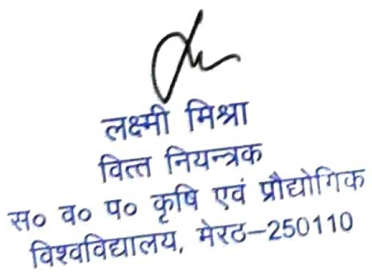 लक्ष्मी मिश्रा
वित्त नियन्त्रक
स० व० प० कृषि एवं प्रौद्योगिक
विश्वविद्यालय, मेरठ-250110